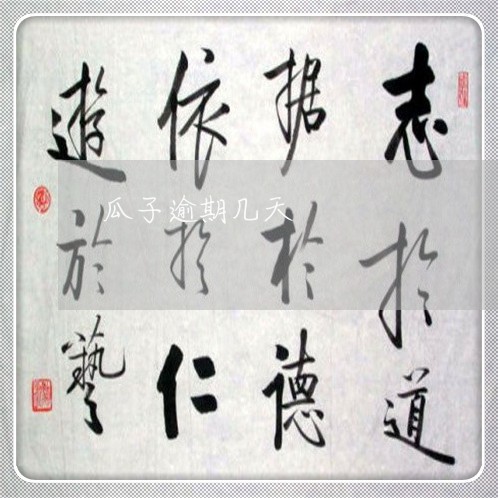 志於道
据於德
依於仁
遊於藝
瓜子逾期几天